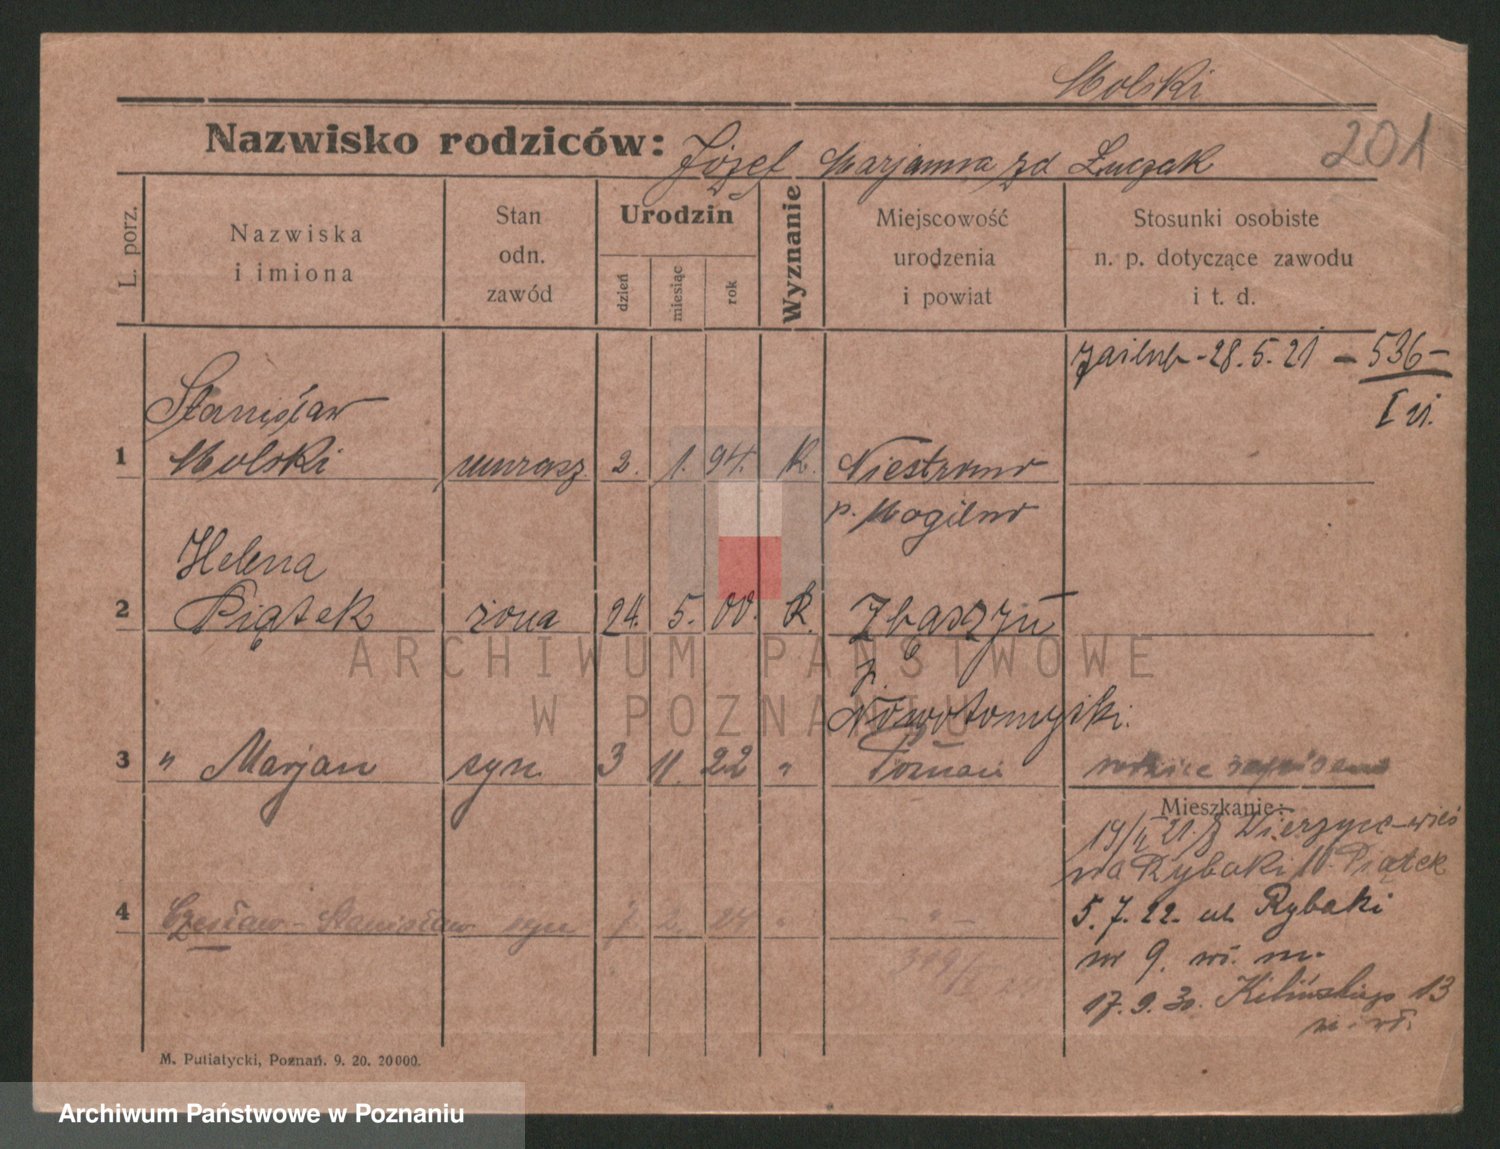 Molski
201
Nazwisko rodziców: Józef Marjanna zd Łuczak
L. porz.
Nazwiska i imiona
Stan odn. zawód
Urodzin
dzień
miesiąc
rok
Wyznanie
Miejscowość urodzenia i powiat
Stosunki osobiste n. p. dotyczące zawodu i t. d.
28.5.21 – 536 –
Stanisław
1 Molski murarz 2. 1. 94. k. Niestronno
p. Mogilno
Helena
2 Piątek żona 24. 5. 00. k. Zbąszyń
p.
Nowotomyski.
3 " Marjan syn 3 11. 22 " Poznań
Mieszkanie:
na Rybaki Piątek
4 Czesław-Stanisław syn 7. 2. 24 " – " –
5.7.22. ul. Rybaki
nr 9.
17.9.30. Kilińskiego 13
M. Putiatycki, Poznań. 9. 20. 20000.
ARCHIWUM PAŃSTWOWE
W POZNANIU
Archiwum Państwowe w Poznaniu